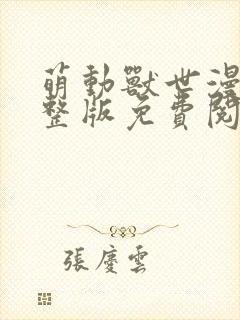 萌動獸世漫
整版免費閱
張慶雲